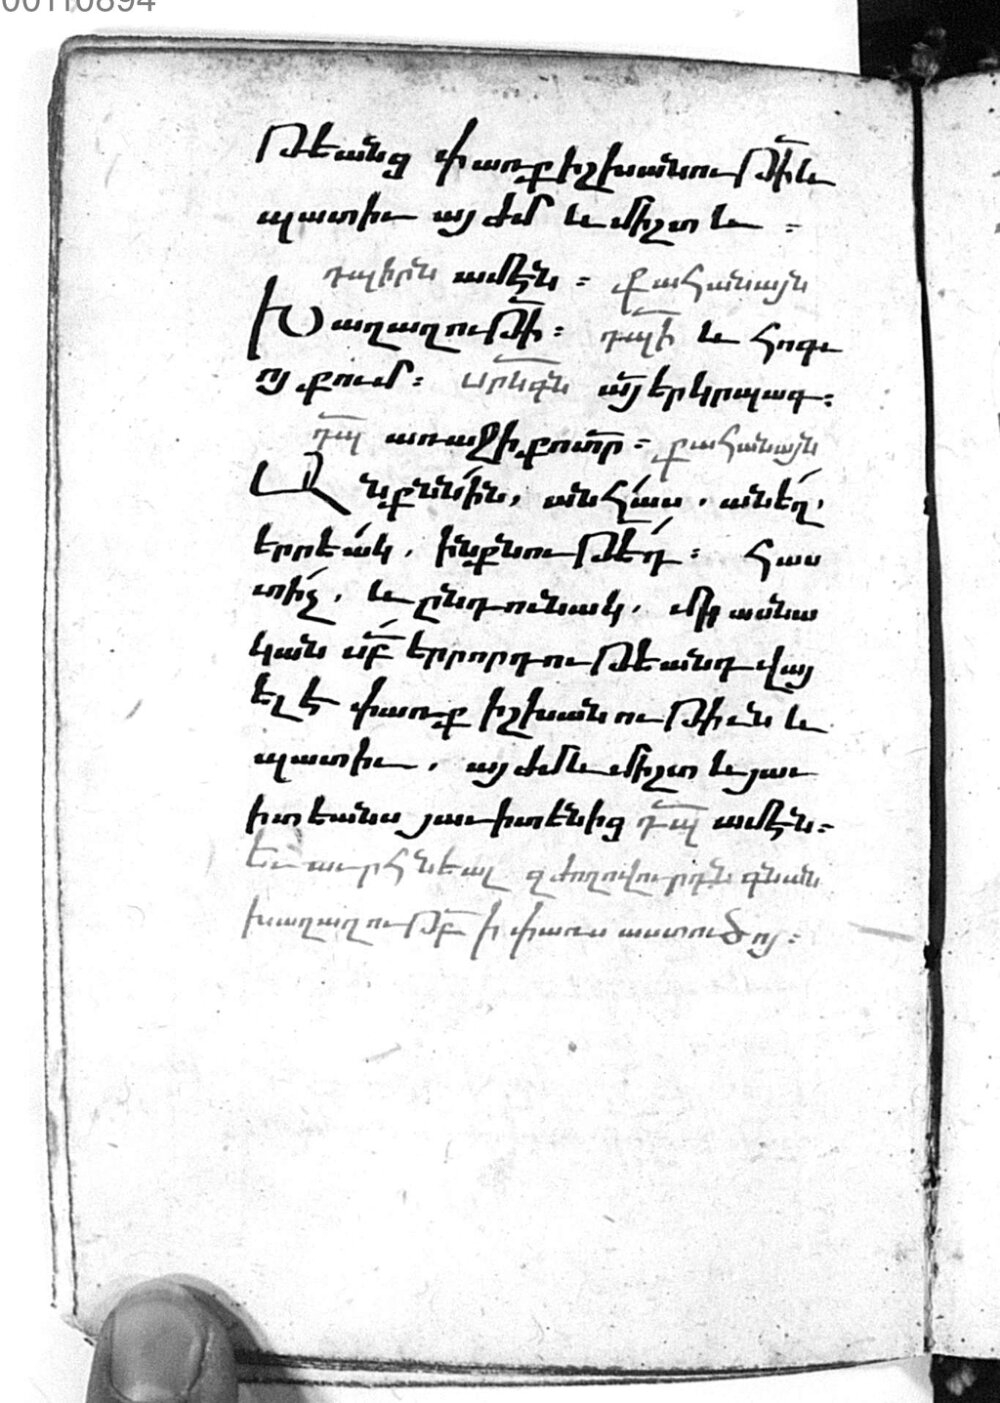 00110894
թեանց փառք իշխանութի՟ և
պատիւ այժմ և միշտ և ։
դպիրն ամէն ։ քահանայն
Խաղաղութի՟ ։ դպի՟ և հոգւ
ոյ քում ։ սրկգն՟ ա՟յ երկրպագ ։
դ՟պ առաջի քո տ՟ր ։ քահանայն
Անքննին, անհաս, անեղ,
երրեակ, ինքնութեդ ։ հաս
տիչ, և ընդունակ, միասնա
կան ս՟բ երրորդութեանդ վայ
ելէ փառք իշխանութիւն և
պատիւ, այժմ և միշտ և յաւ
իտեանս յաւիտէնից դ՟պ ամէն ։
Եւ աւրհնեալ զժողովուրդն գնան
խաղաղութբ՟ ի փառս աստուծոյ ։